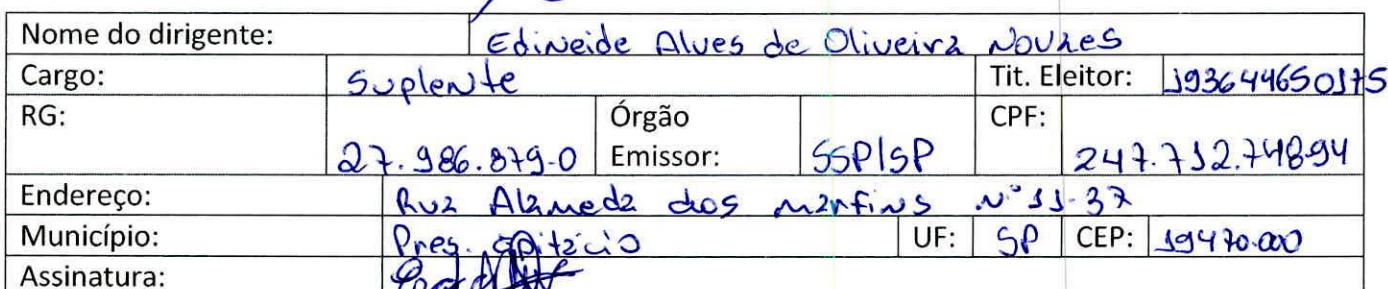 Nome do dirigente: Edineide Alves de Oliveira Novaes
Cargo: Suplente Tit. Eleitor: 193644650175
RG: 27.986.879-0 Órgão Emissor: SSP/SP CPF: 247.712.748-94
Endereço: Rua Alameda dos marfins N° 11-37
Município: Pres. Epitácio UF: SP CEP: 19470.000
Assinatura: